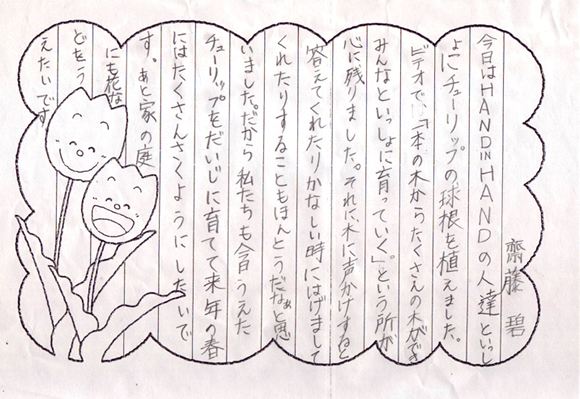 齋藤 碧
今日はHAND IN HANDの人達といっし
ょにチューリップの球根を植えました。
ビデオで、「一本の木からたくさんの木ができ
みんなといっしょに育っていく。」という所が
心に残りました。それに、木に声かけすると
答えてくれたりかなしい時にはげまして
くれたりすることもほんとうだなぁと思
いました。だから私たちも今日うえた
チューリップをだいじに育てて来年の春
にはたくさんさくようにしたいで
す。あと家の庭
にも花な
どをう
えたいです